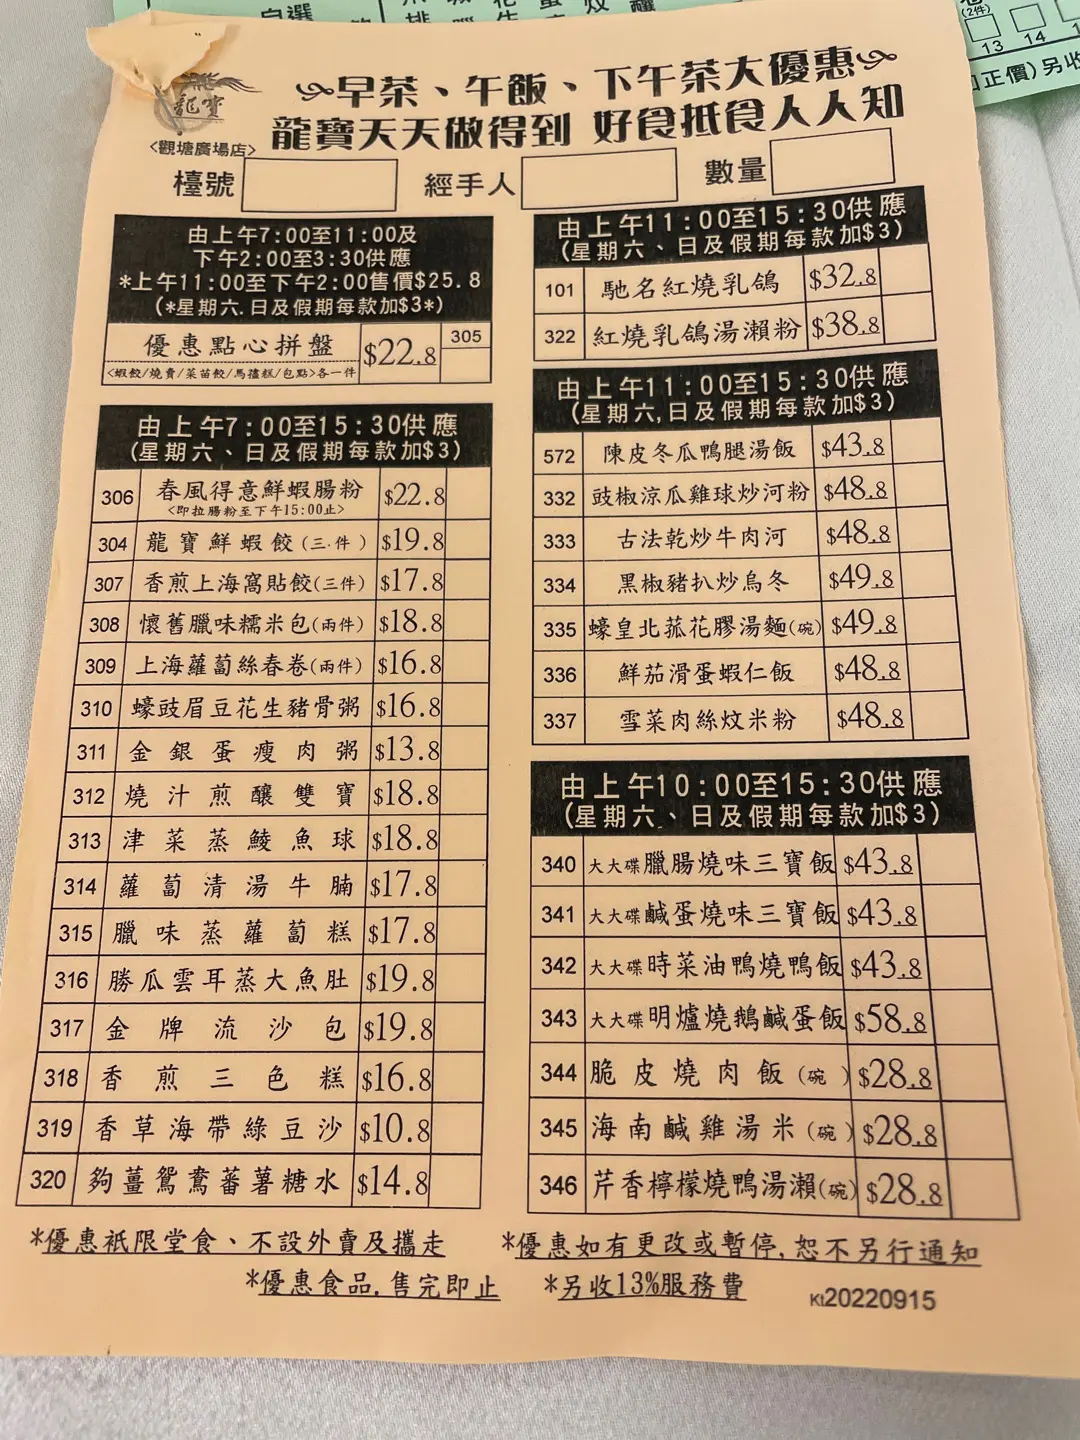 自選
(2件)
13 14
(正價)另收
龍寶
<觀塘廣場店>
早茶、午飯、下午茶大優惠
龍寶天天做得到 好食抵食人人知
檯號 經手人 數量
由上午7:00至11:00及
下午2:00至3:30供應
*上午11:00至下午2:00售價$25.8
(*星期六.日及假期每款加$3*)
優惠點心拼盤 $22.8 305
<蝦餃/燒賣/菜苗餃/馬𥻵糕/包點>各一件
由上午7:00至15:30供應
(星期六、日及假期每款加$3)
306 春風得意鮮蝦腸粉 $22.8
<即拉腸粉至下午15:00止>
304 龍寶鮮蝦餃(三.件) $19.8
307 香煎上海窩貼餃(三件) $17.8
308 懷舊臘味糯米包(兩件) $18.8
309 上海蘿蔔絲春卷(兩件) $16.8
310 蠔豉眉豆花生豬骨粥 $16.8
311 金銀蛋瘦肉粥 $13.8
312 燒汁煎釀雙寶 $18.8
313 津菜蒸鯪魚球 $18.8
314 蘿蔔清湯牛腩 $17.8
315 臘味蒸蘿蔔糕 $17.8
316 勝瓜雲耳蒸大魚肚 $19.8
317 金牌流沙包 $19.8
318 香煎三色糕 $16.8
319 香草海帶綠豆沙 $10.8
320 夠薑鴛鴦蕃薯糖水 $14.8
由上午11:00至15:30供應
(星期六、日及假期每款加$3)
101 馳名紅燒乳鴿 $32.8
322 紅燒乳鴿湯瀨粉 $38.8
由上午11:00至15:30供應
(星期六,日及假期每款加$3)
572 陳皮冬瓜鴨腿湯飯 $43.8
332 豉椒涼瓜雞球炒河粉 $48.8
333 古法乾炒牛肉河 $48.8
334 黑椒豬扒炒烏冬 $49.8
335 蠔皇北菰花膠湯麵(碗) $49.8
336 鮮茄滑蛋蝦仁飯 $48.8
337 雪菜肉絲炆米粉 $48.8
由上午10:00至15:30供應
(星期六、日及假期每款加$3)
340 大大碟臘腸燒味三寶飯 $43.8
341 大大碟鹹蛋燒味三寶飯 $43.8
342 大大碟時菜油鴨燒鴨飯 $43.8
343 大大碟明爐燒鵝鹹蛋飯 $58.8
344 脆皮燒肉飯(碗) $28.8
345 海南鹹雞湯米(碗) $28.8
346 芹香檸檬燒鴨湯瀨(碗) $28.8
*優惠衹限堂食、不設外賣及攜走 *優惠如有更改或暫停,恕不另行通知
*優惠食品.售完即止 *另收13%服務費 Kt20220915